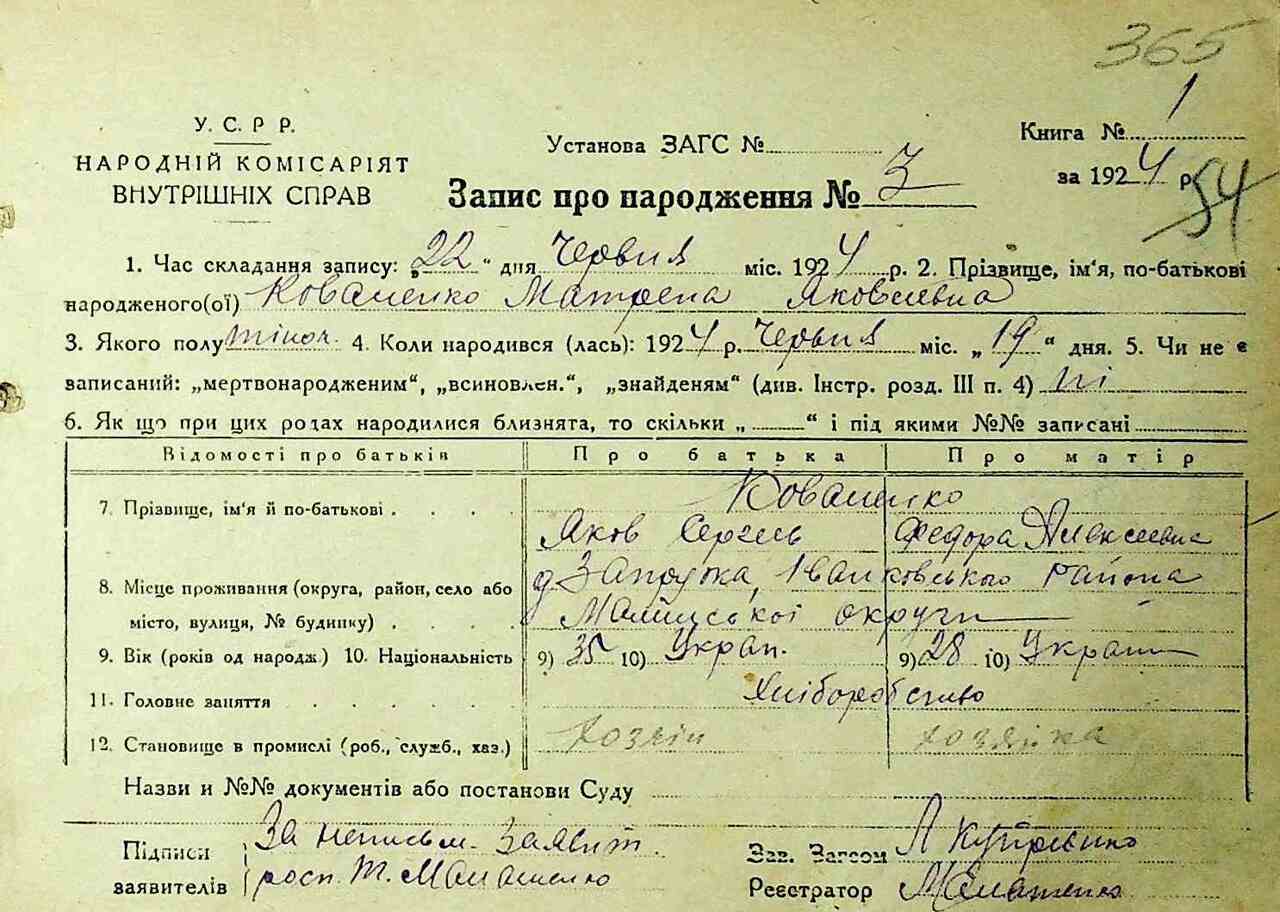 365
У. С. Р Р.
НАРОДНІЙ КОМІСАРІЯТ
ВНУТРІШНІХ СПРАВ
Установа ЗАГС №
Книга № 1
за 1924 р.
54
Запис про народження № 3
1. Час складання запису: „22“ дня Червня міс. 1924 р. 2. Прізвище, ім'я, по-батькові
народженого(ої) Коваленко Матрена Яковлевна
3. Якого полу жіноч. 4. Коли народився (лась): 1924 р. Червня міс. „19“ дня. 5. Чи не є
записаний: „мертвонародженим“, „всиновлен.“, „знайденям“ (див. Інстр. розд. III п. 4) ні
6. Як що при цих родах народилися близнята, то скільки „ “ і під якими №№ записані
Відомості про батьків Про батька Про матір
7. Прізвище, ім'я й по-батькові Коваленко
Яков Сергеев Федора Алексеевна
8. Місце проживання (округа, район, село або д. Запрудка, Іванковського района
місто, вулиця, № будинку) Малинської округи
9. Вік (років од народж.) 10. Національність 9) 35 10) Украп. 9) 28 10) Украп
11. Головне заняття Хліборобство
12. Становище в промислі (роб., служб., хаз.) хозяін хозяйка
Назви и №№ документів або постанови Суду
Підписи заявителів
За неписьм. заявит.
росп. Т. Малашенко
Зав. Загсом
Реєстратор